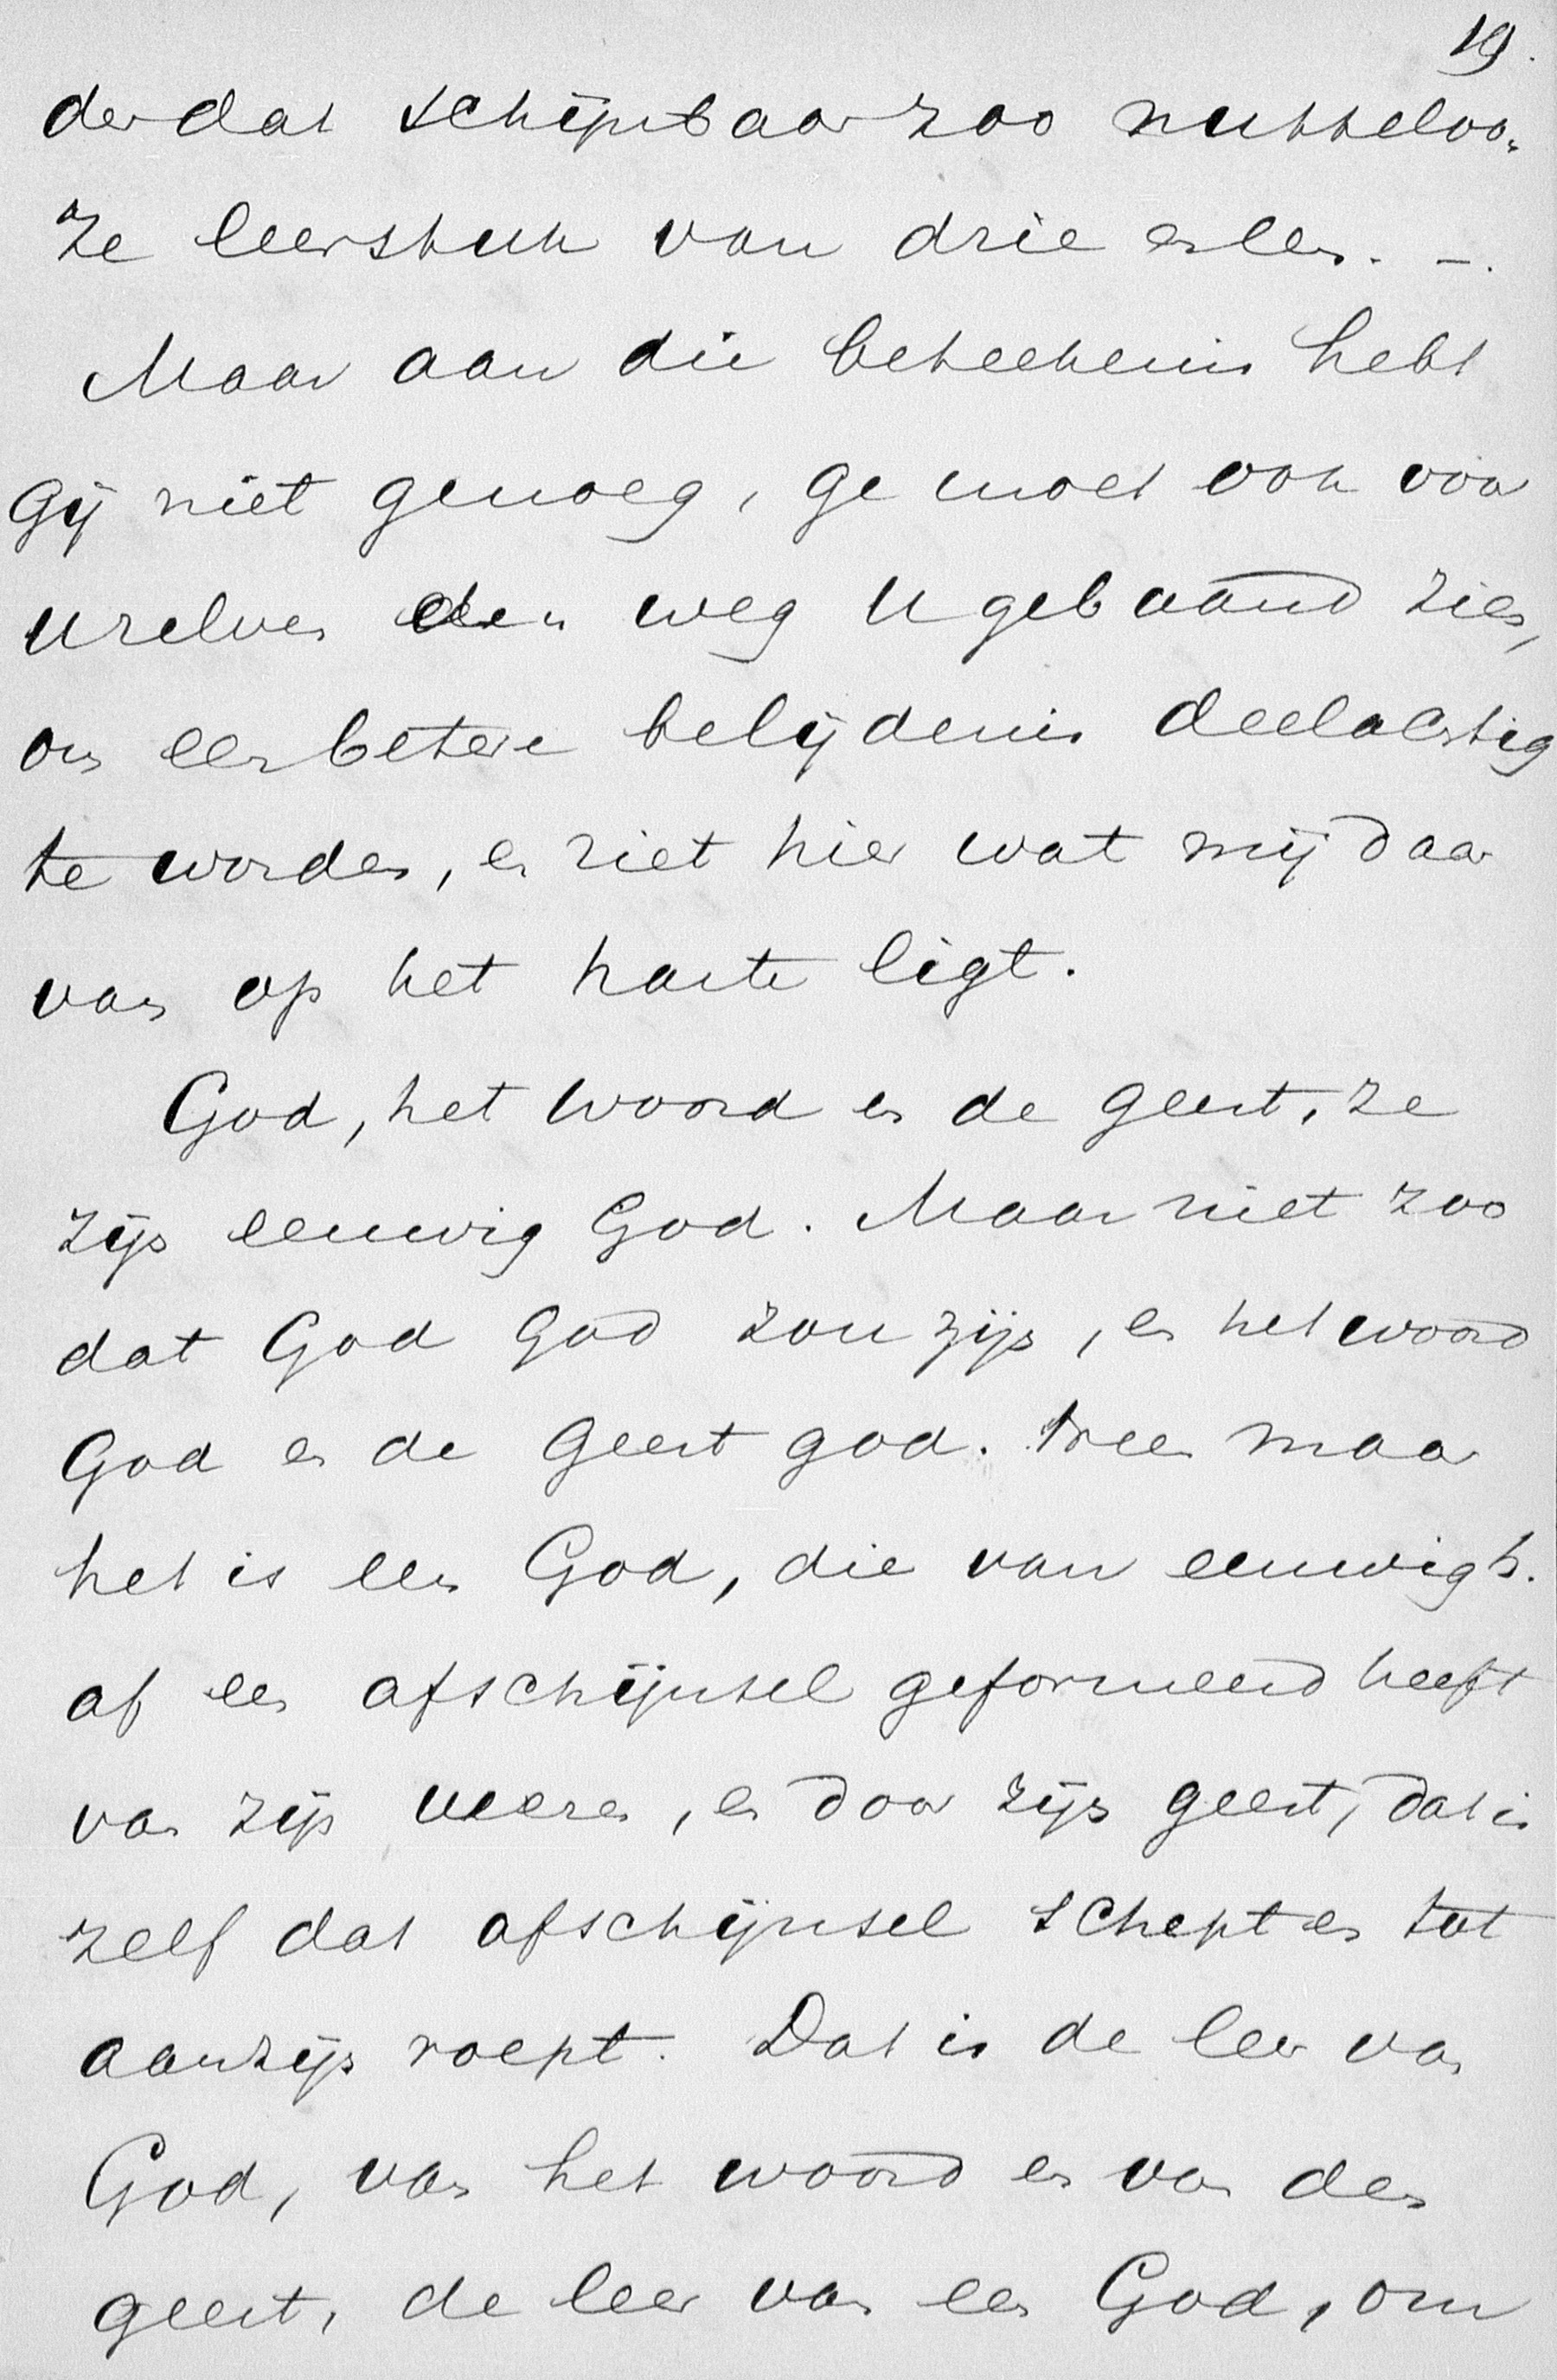 19.
der dat schijnbaar zoo nutteloo-
ze leerstuk van drie enlen. -.
Maar aan die beteekenis hebt
Gij niet genoeg, ge moet ook voor
uzelven den weg u gebaand zien,
om een betere belijdenis deelachtig
te worden, en ziet hier wat mij daar
van op het harte ligt.
God, het woord en de geest, ze
zijn eeuwig God. Maar niet zoo
dat God God zou zijn, en het woord
God en de Geest god. Neen maar
het is een God, die van eeuwigh.
af een afschijnsel geformeerd heeft
van zijn wezen, en door zijn geest, dat is
zelf dat afschijnsel schept en tot
aanzijn roept. Dat is de leer van
God, van het woord en van den
geest, de leer van een God, om